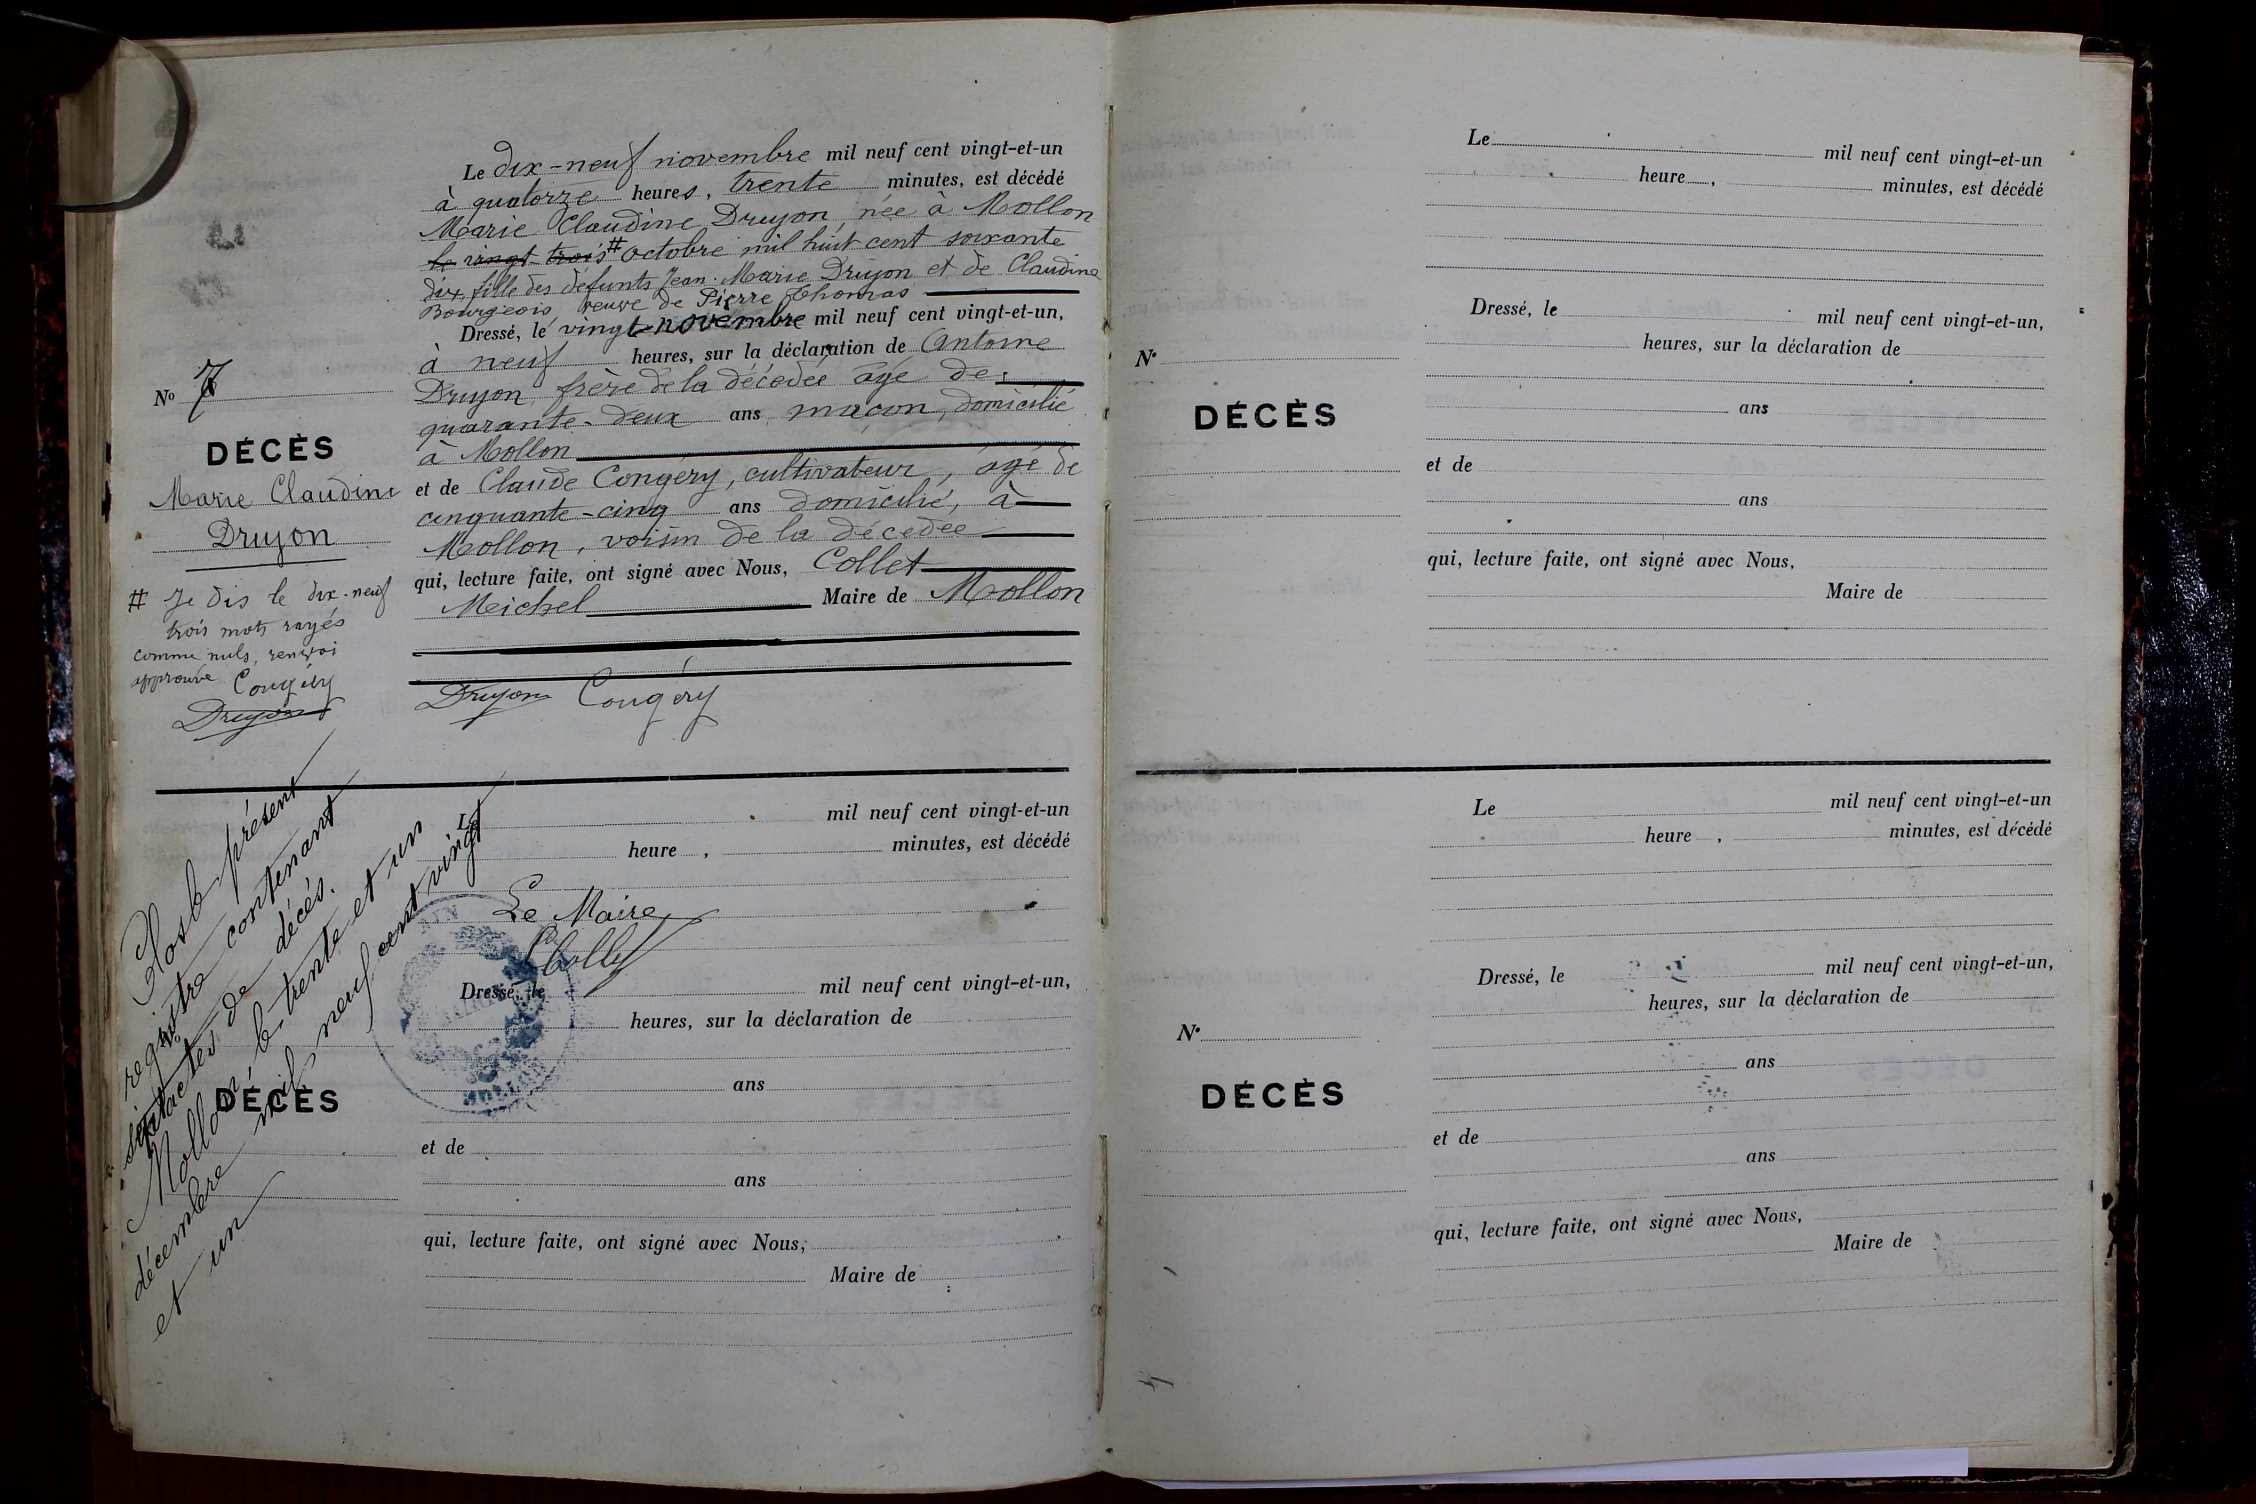 Le dix-neuf novembre mil neuf cent vingt-et-un
à quatorze heures, trente minutes, est décédé
Marie Claudine Druyon, née à Mollon
le vingt trois # octobre mil huit cent soixante
dix, fille des défunts Jean-Marie Druyon et de Claudine
Bourgeois, veuve de Pierre Thomas
Dressé, le vingt novembre mil neuf cent vingt-et-un,
à neuf heures, sur la déclaration de Antoine
Druyon, frère de la décédée âgé de
quarante-deux ans maçon, domicilié
à Mollon
et de Claude Congéry, cultivateur, âgé de
cinquante-cinq ans domicilié, à
Mollon, voisin de la décédée
qui, lecture faite, ont signé avec Nous, Collet
Michel Maire de Mollon
Druyon Congéry
No 7
DÉCÈS
Marie Claudine
Druyon
# Je dis le dix-neuf
trois mots rayés
comme nuls, renvoi
approuvé Congéry
Druyon
Clos le présent
registre contenant
sept actes de décés.
Mollon le trente et un
décembre mil neuf cent vingt
et un
Le mil neuf cent vingt-et-un
heure , minutes, est décédé
Le Maire
Collet
AIN
MOLLON
Dressé, le mil neuf cent vingt-et-un,
heures, sur la déclaration de
No
DÉCÈS
ans
et de
ans
qui, lecture faite, ont signé avec Nous,
Maire de
Le mil neuf cent vingt-et-un
heure , minutes, est décédé
Dressé, le mil neuf cent vingt-et-un,
heures, sur la déclaration de
No
DÉCÈS
ans
et de
ans
qui, lecture faite, ont signé avec Nous,
Maire de
Le mil neuf cent vingt-et-un
heure , minutes, est décédé
Dressé, le mil neuf cent vingt-et-un,
heures, sur la déclaration de
No
DÉCÈS
ans
et de
ans
qui, lecture faite, ont signé avec Nous,
Maire de